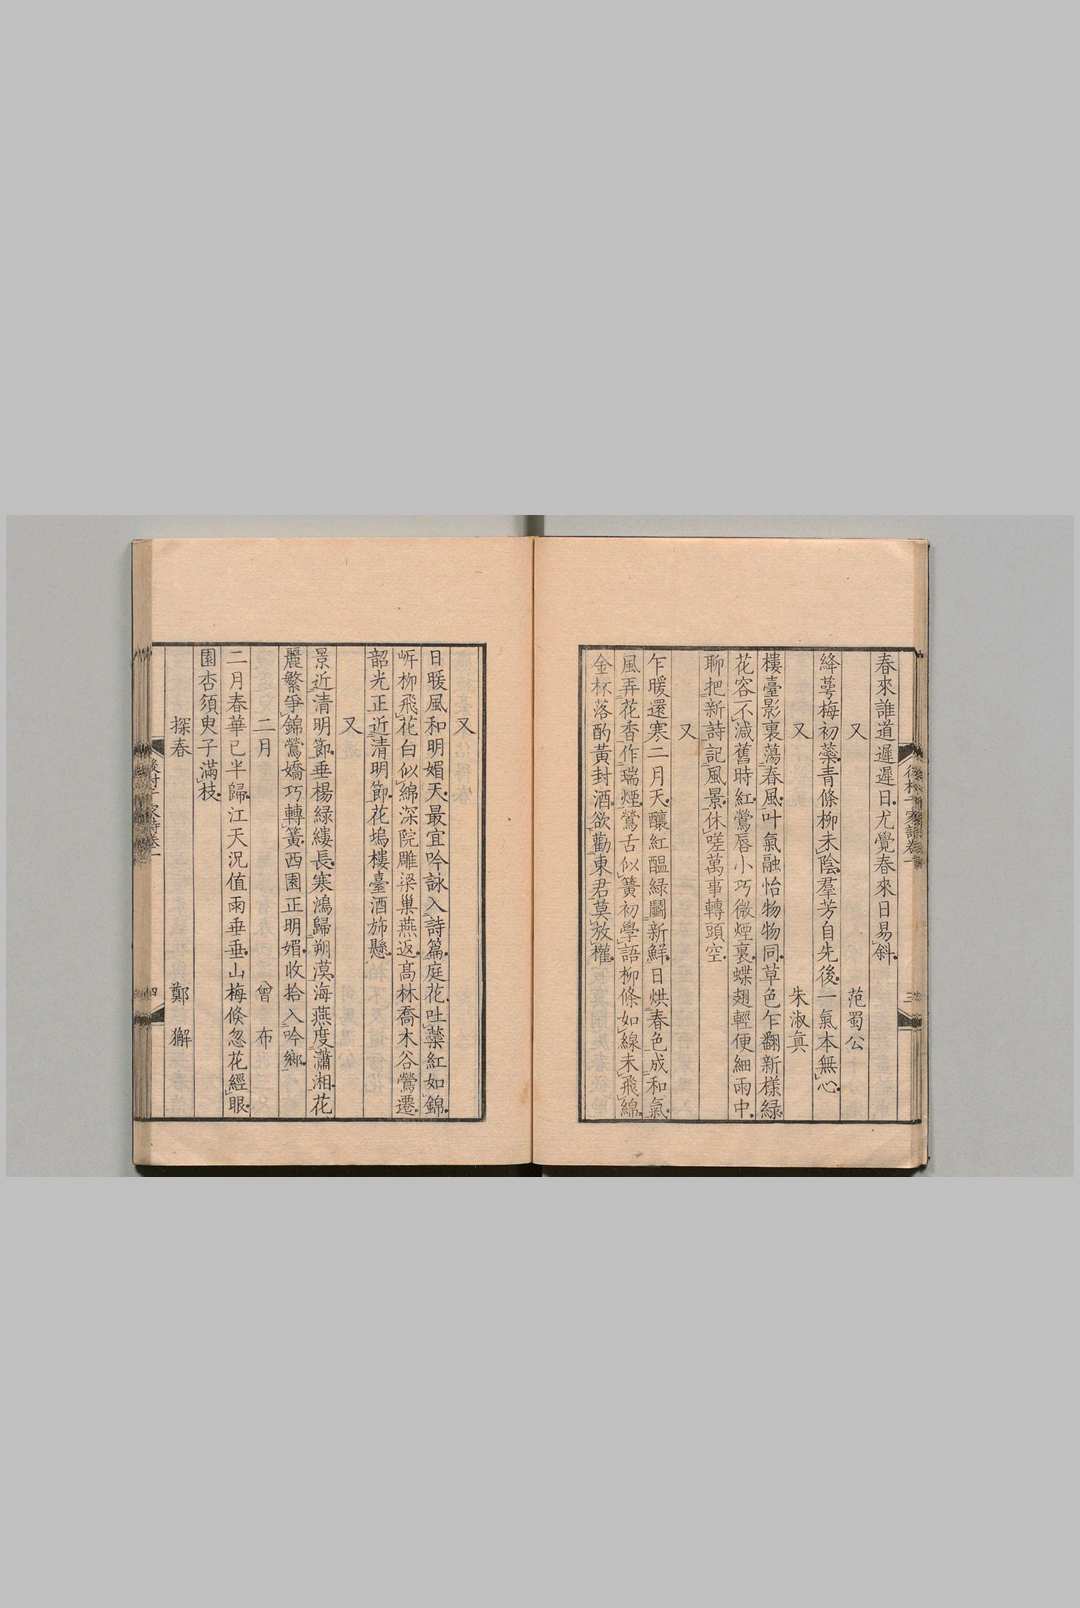 春來誰道遲遲日尤覺春來日易斜
又 范蜀公
絳萼梅初蘂青條柳未陰羣芳自先後一氣本無心
又 朱淑真
樓臺影裏蕩春風叶氣融怡物物同草色乍翻新樣綠
花容不減舊時紅鶯唇小巧微煙裏蝶翅輕便細雨中
聊把新詩記風景休嗟萬事轉頭空
又
乍暖還寒二月天釀紅醞綠鬬新鮮日烘春色成和氣
風弄花香作瑞煙鶯舌似簧初學語柳條如線未飛綿
金杯落酌黃封酒欲勸東君莫放權
三
又
日暖風和明媚天最宜吟詠入詩篇庭花吐蘂紅如錦
岍柳飛花白似綿深院雕梁巢燕返髙林喬木谷鶯遷
韶光正近清明節花塢樓臺酒斾懸
又
景近清明節垂楊綠縷長寒鴻歸朔漠海燕度瀟湘花
麗繁爭錦鶯嬌巧轉簧西園正明媚收拾入吟鄉
二月 曾布
二月春華已半歸江天況值雨垂垂山梅倏忽花經眼
園杏須臾子滿枝
探春 鄭獬
四